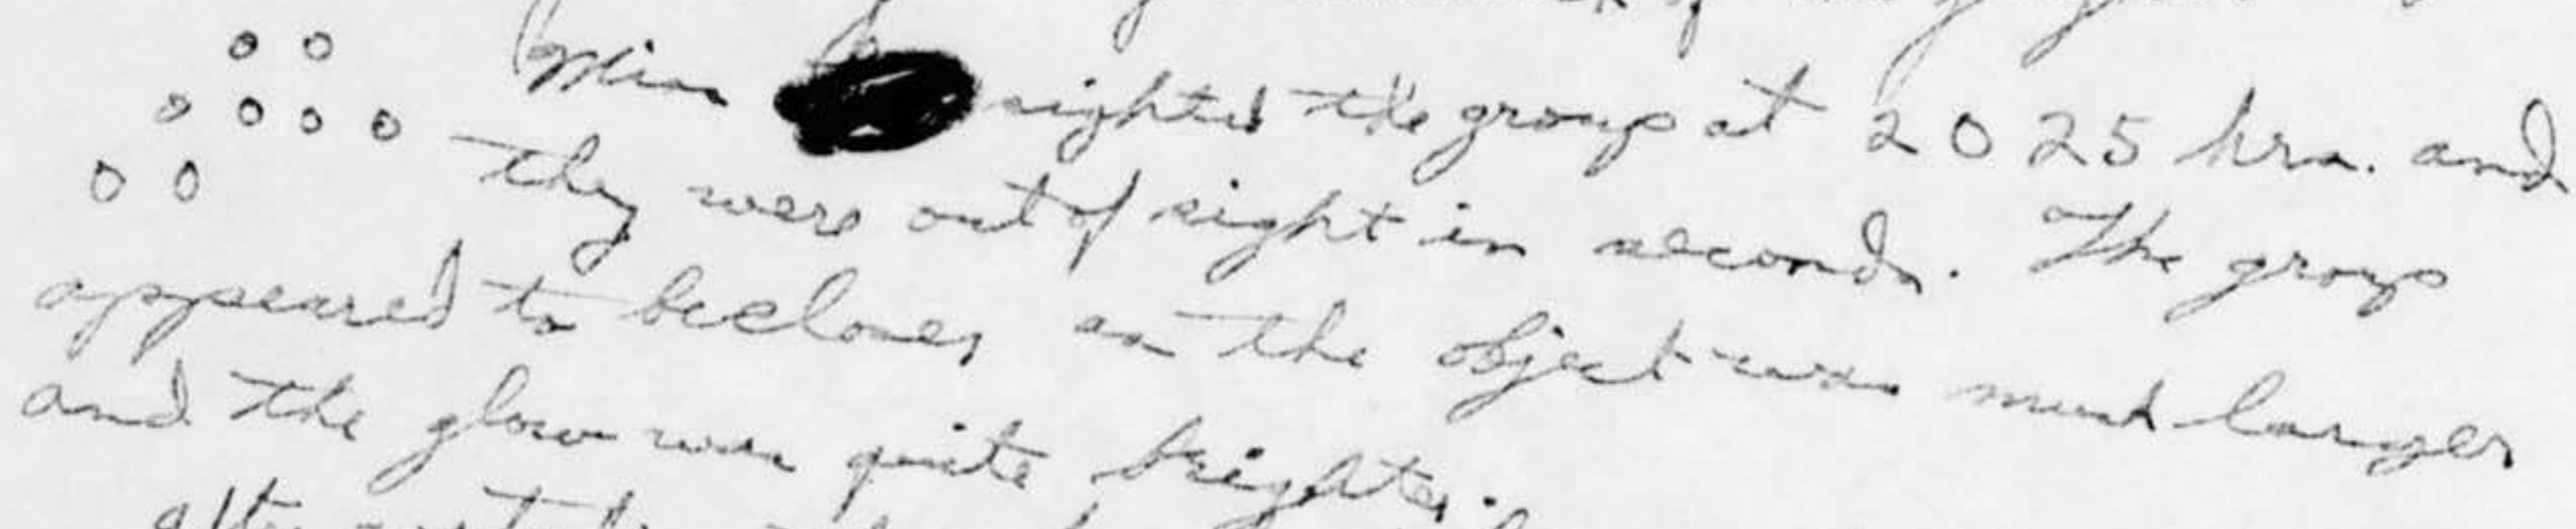 Miss sighted the group at 2025 hrs. and
they were out of sight in seconds. The group
appeared to be closer, as the object was much larger
and the glow was quite brighter.